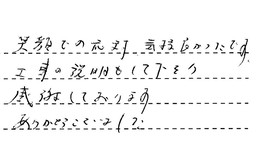 笑顔での応対 気持良かったです
工事の説明もして下さり
感謝しております
ありがとうございました